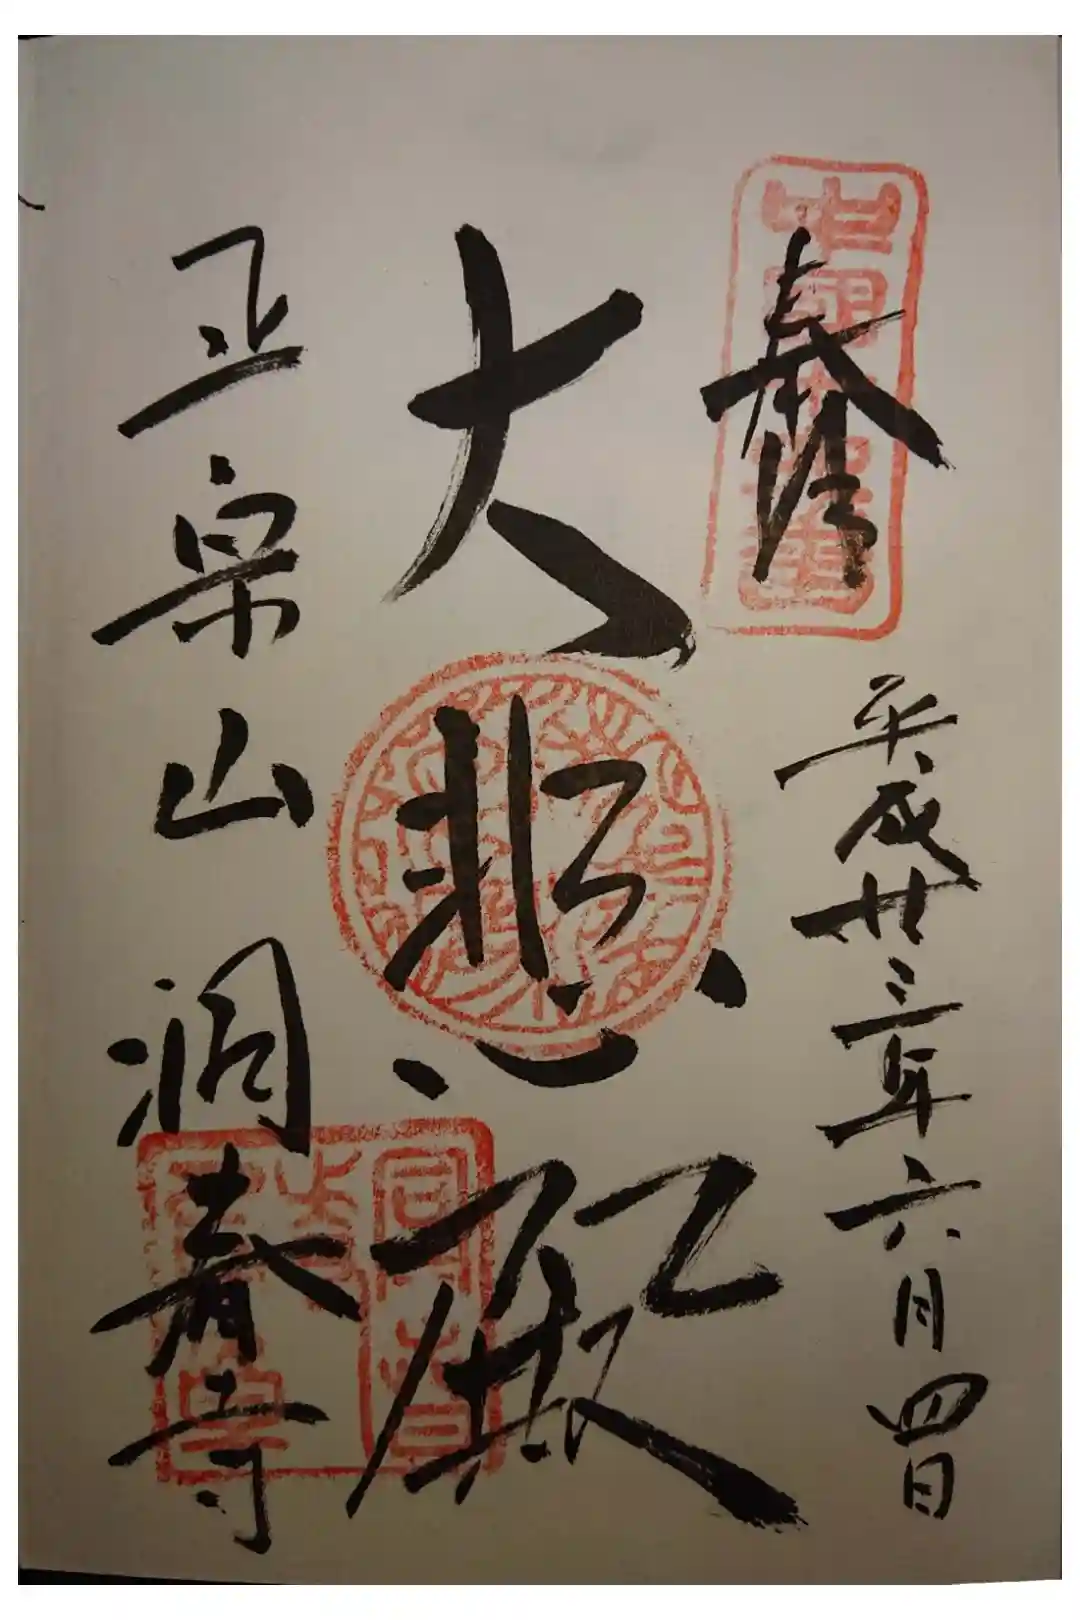 奉拝
平成廿三年六月四日
大悲殿
正宗山洞春寺